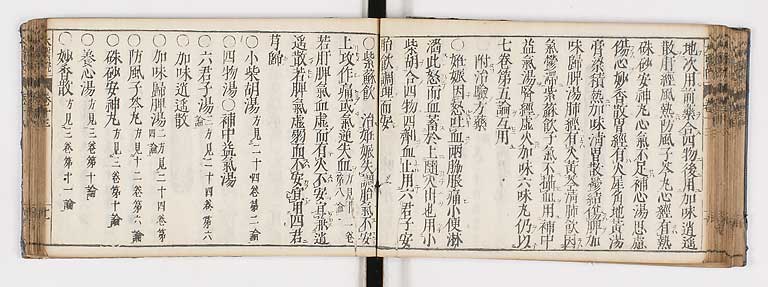 地次用前藥合四物後用加味逍遙
散肝經風熱防風子芩丸心經有熱
硃砂安神丸心氣不足補心湯思慮
傷心妙香散胃經有火犀角地黃湯
膏粱積熱加味清胃散鬱結傷脾加
味歸脾湯肺經有火黃芩清肺飲因
氣鬱滯紫蘇飲子氣不攝血用補中
益氣湯腎經虛火加味六味丸仍以
七卷第五論互用
附治驗方藥
○一妊娠因怒吐血兩脇脹痛小便淋
濇此怒而血蓄於上隨火出也用小
柴胡合四物四劑血止用六君子安
胎飲調理而安
○紫蘇飲 治妊娠失調胎氣不安
上攻作痛或氣逆失血
若肝脾氣血虛而有火不安宜兼逍
遙散若脾氣虛弱而不安宜用四君
芎歸
○小柴胡湯 方見二十四卷第二論
○四物湯○補中益氣湯
○六君子湯 三方見二十四卷第六論
○加味逍遙散
○加味歸脾湯 二方見二十四卷第四論
○防風子芩丸 方見十二卷第六論
○硃砂安神丸 方見二卷第十論
○養心湯 方見三卷第十論
○妙香散 方見三卷第十一論